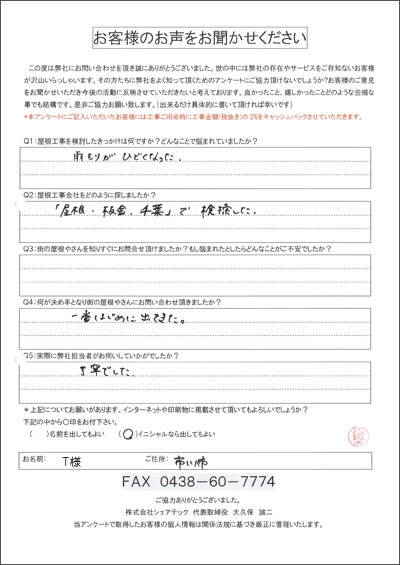 お客様のお声をお聞かせください
この度は弊社にお問い合わせを頂き誠にありがとうございました。世の中には弊社の存在やサービスをご存知ないお客様
が沢山いらっしゃいます。その方たちに弊社をよく知って頂くためのアンケートにご協力頂けないでしょうか?お客様のご意見
をお聞かせいただき今後の活動に反映させていただきたいと考えております。良かったこと、嬉しかったことどのような些細な
事でも結構です。是非ご協力お願い致します。(出来るだけ具体的に書いて頂ければ幸いです)
*本アンケートにご記入いただいたお客様には工事ご用命時に工事金額(税抜き)の2%をキャッシュバックさせていただきます。
Q1:屋根工事を検討したきっかけは何ですか?どんなことで悩まれていましたか?
雨もりがひどくなった。
Q2:屋根工事会社をどのように探しましたか?
「屋根・板金、千葉」で検索した。
Q3:街の屋根やさんを知りすぐにお問合せ頂けましたか?もし悩まれたとしたらどんなことがご不安でしたか?
Q4:何が決め手となり街の屋根やさんにお問い合わせ頂きましたか?
一番はじめに出てきた。
Q5:実際に弊社担当者がお伺いしていかがでしたか?
丁寧でした。
*上記についてお願いがあります。インターネットや印刷物に掲載させて頂いてもよろしいでしょうか?
下記の中から〇印をお付下さい。
( )名前を出してもよい (〇)イニシャルなら出してもよい
お名前: T様 ご住所: 市川市
FAX 0438-60-7774
ご協力ありがとうございました。
株式会社シェアテック 代表取締役 大久保 誠二
当アンケートで取得したお客様の個人情報は関係法規に基づき厳正に管理いたします。